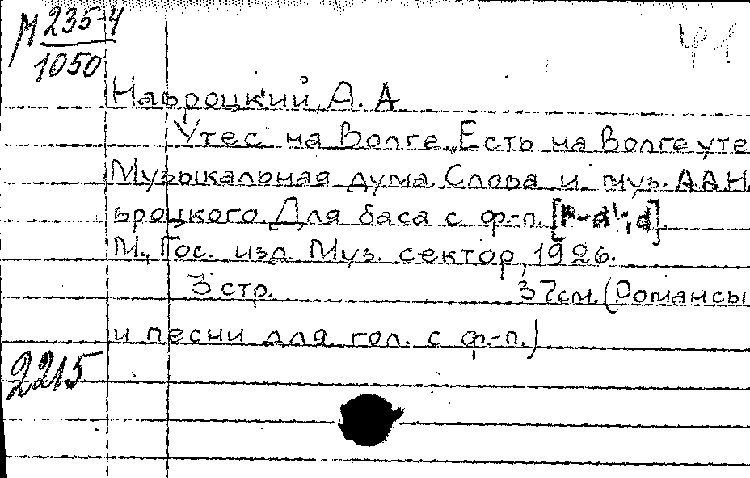 М 235-4
1050
41
Навроцкий, А. А
Утес на Волге „Есть на Волге уте
Музыкальная дума. Слова и муз. А.А.Н
вроцкого. Для баса с ф-п.
М., Гос. изд. Муз. сектор, 1926.
3 стр. 37см. (Романсы
и песни для гол. с ф-п.)
2215